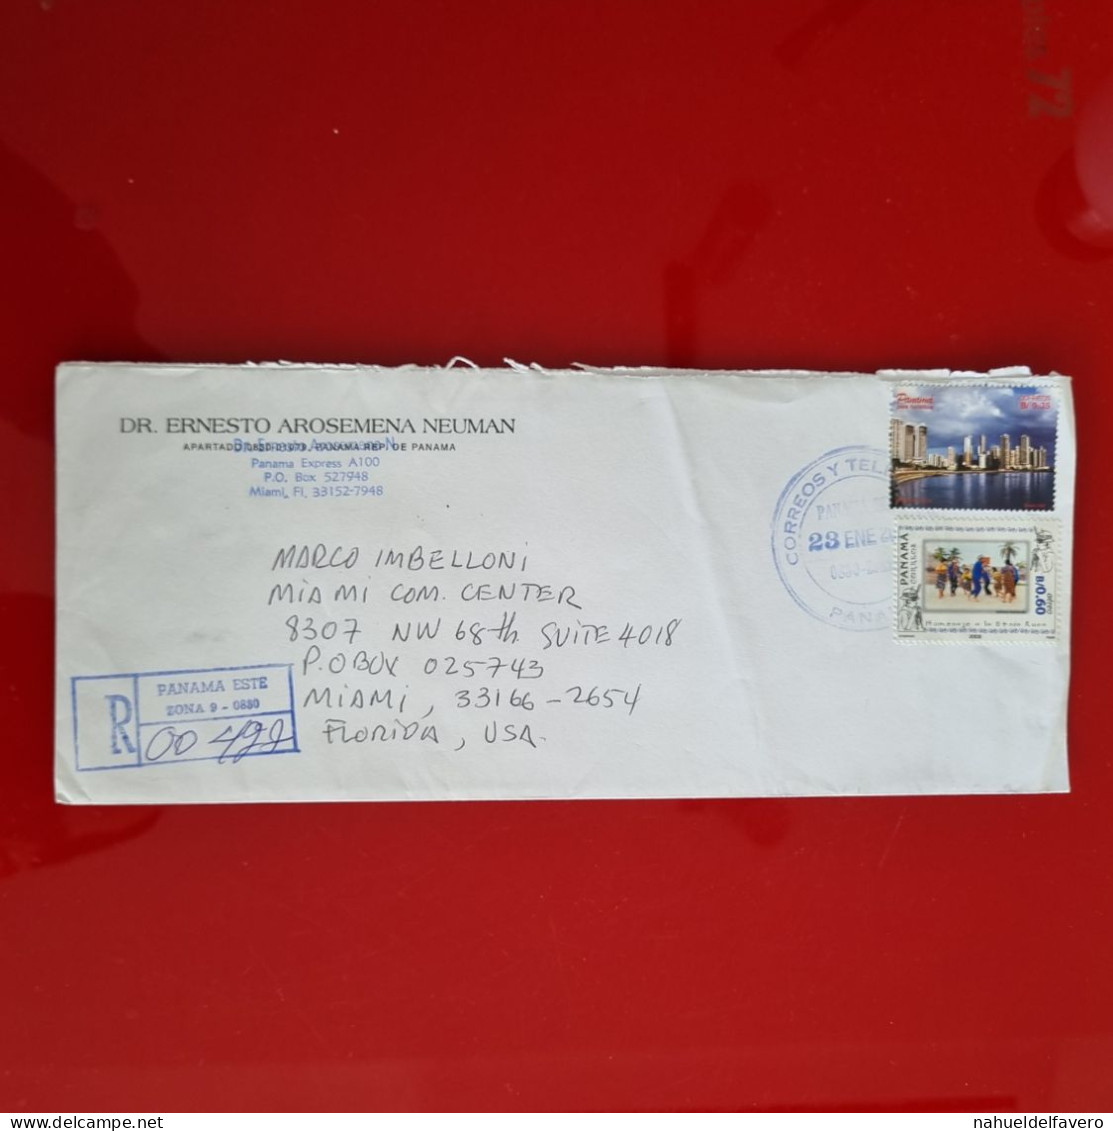 72
DR. ERNESTO AROSEMENA NEUMAN
APARTADO 0830-01979, PANAMA REP. DE PANAMA
Dr. Ernesto Arosemena N.
Panama Express A100
P.O. Box 527948
Miami, Fl, 33152-7948
MARCO IMBELLONI
MIAMI COM. CENTER
8307 NW 68th SUITE 4018
P.O BOX 025743
MIAMI, 33166-2654
FLORIDA, USA.
R
PANAMA ESTE
ZONA 9 - 0830
00 499
CORREOS Y TEL
23 ENE
PANA
Panama
B/0.35
PANAMÁ
CORREOS
B/0.60
Homenaje a la Etnia
nahueldelfavero